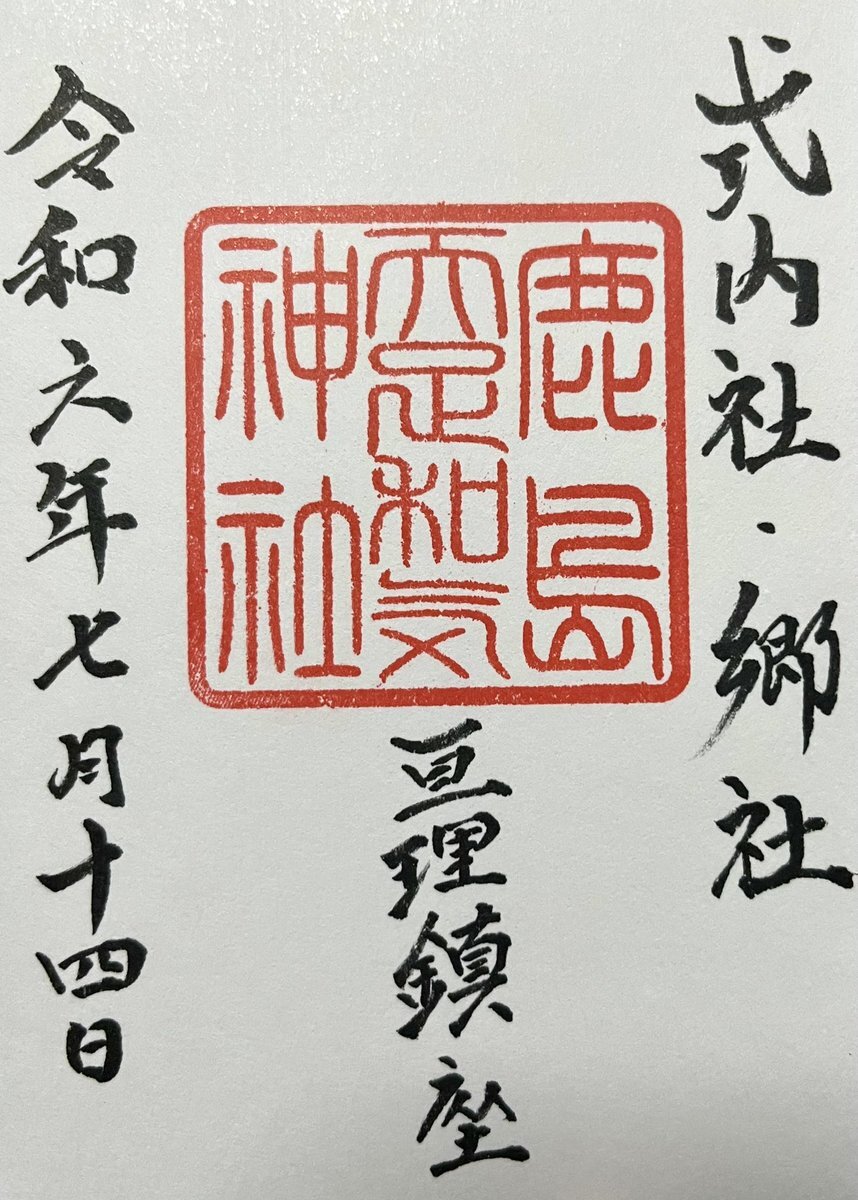 式内社・郷社
鹿島
天足和気
神社
亘理鎮座
令和六年七月十四日